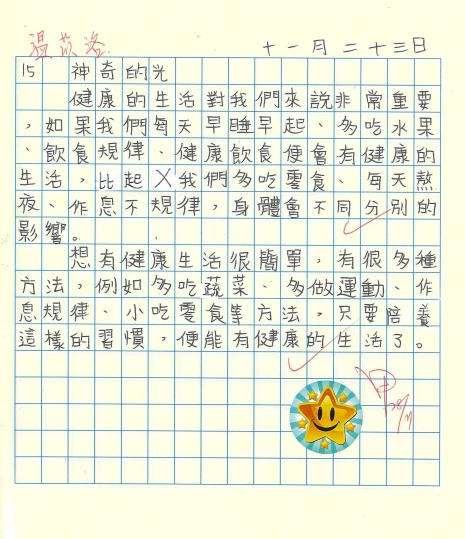 溫苡洛
十一月二十三日
15 神奇的光
健康的生活對我們來說非常重要
，如果我們每天早睡早起、多吃水果
、飲食規律、健康飲食便會有健康的
生活，比起╳我們多吃零食、每天熬
夜、作息不規律，身體會不同分別的
影響。
想有健康生活很簡單，有很多種
方法，例如多吃蔬菜、多做運動、作
息規律、小吃零食等方法，只要陪養
這樣的習慣，便能有健康的生活了。
28/11